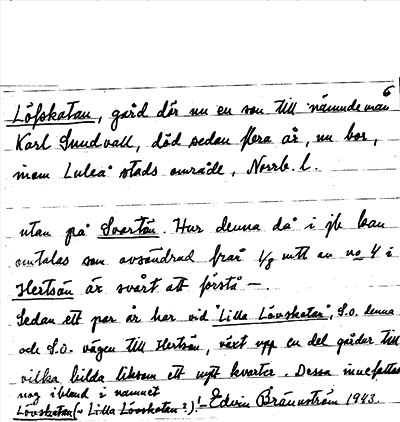 6
Löfskatan, gård där nu en son till nämndeman
Karl Sundvall, död sedan flera år, nu bor,
inom Luleå stads område, Norrb. l.
utan på Svartön. Hur denna då i jb kan
omtalas som avsöndrad från 1/8 mtl av no 4 i
Hertsön är svårt att förstå —.
Sedan ett par år har vid "Lilla Lövskatan", S.o. denna
och S.o. vägen till Hertsön, växt upp en del gårdar till
vilka bilda liksom ett nytt kvarter. Dessa innefattas
nog ibland i namnet
Lövskatan (~ Lilla Lövskatan?)! – Edvin Brännström 1943.